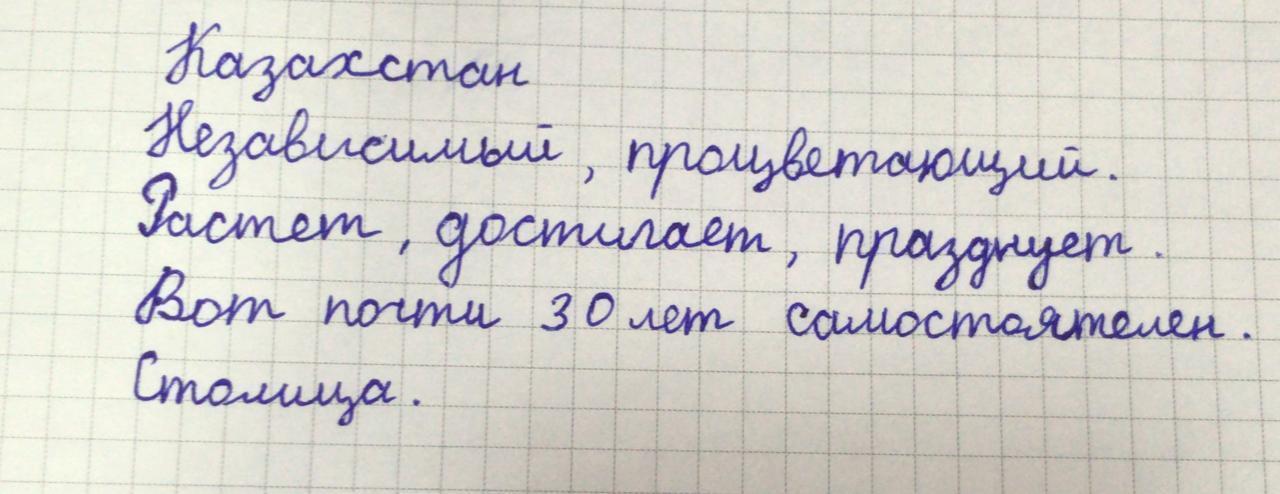 Казахстан
Независимый, процветающий.
Растет, достигает, празднует.
Вот почти 30 лет самостоятелен.
Столица.